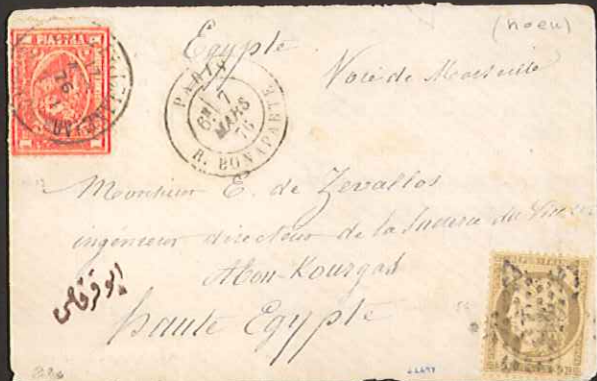 (noeu)
Egypte
Voie de Marseille
PIASTRA
PARIS
6E 7
MARS
76
R. BONAPARTE
Monsieur E. de Zevallos
ingénieur directeur de la
Abou-Kourgas
ابو قرقاص
haute Egypte